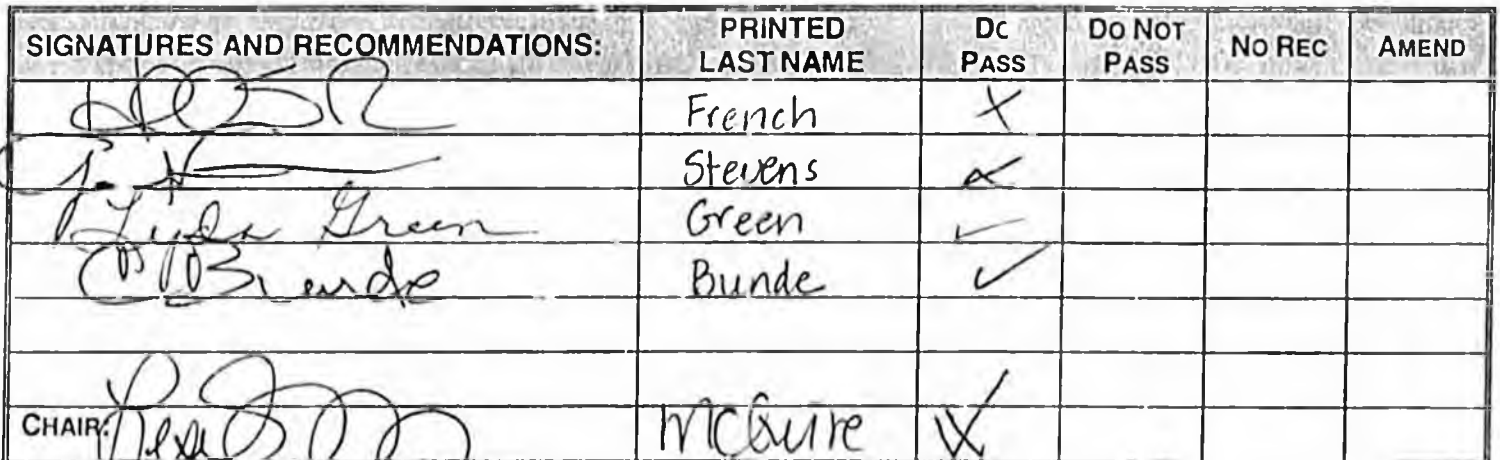 SIGNATURES AND RECOMMENDATIONS: PRINTED LAST NAME DO PASS DO NOT PASS NO REC AMEND
French X
Stevens
Linda Green Green ✓
Bunde Bunde ✓
CHAIR: McGuire X